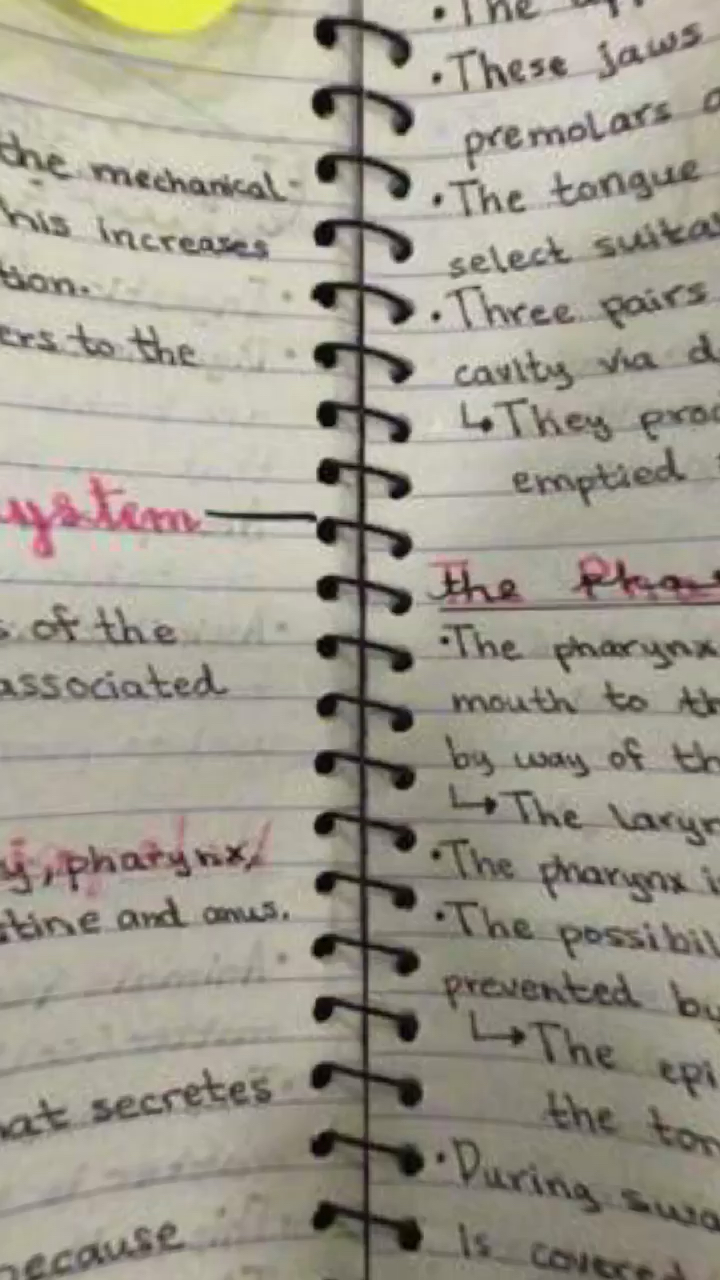 the mechanical
his increases
tion.
ers to the
ystem
s of the
associated
y, pharynx,
stine and anus.
hat secretes
because
• The
• These jaws
premolars
• The tongue
select suita
• Three pairs
cavity via d
↳ They proc
emptied
The Pha
• The pharynx
mouth to th
by way of th
↳ The laryn
• The pharynx i
• The possibil
prevented by
↳ The epi
the ton
• During swa
is covered